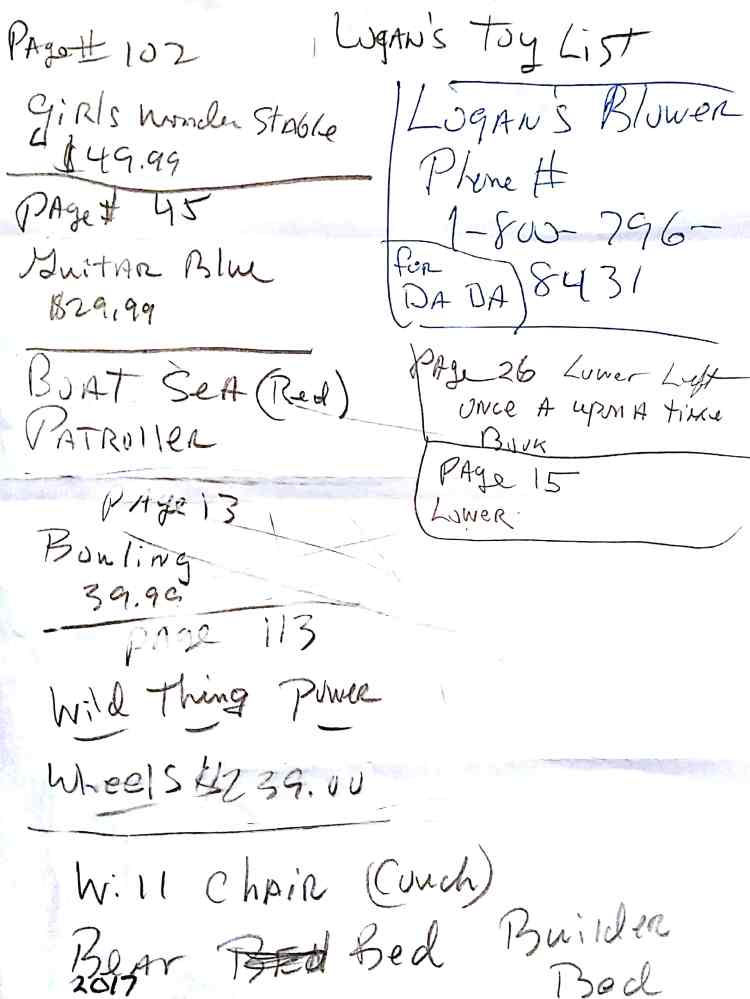 Page # 102
Logan's Toy List
Girls Wonder Stable
$49.99
Page # 45
Guitar Blue
$29.99
Boat Sea (Red)
Patroller
Page 13
Bowling
39.99
Page 113
Wild Thing Power
Wheels $239.00
Will Chair (Couch)
Bear Bed Builder
Bed
2017
Logan's Blower
Phone #
1-800-796-
8431
for
DA DA
Page 26 Lower Left
once A upon A time
Book
Page 15
Lower